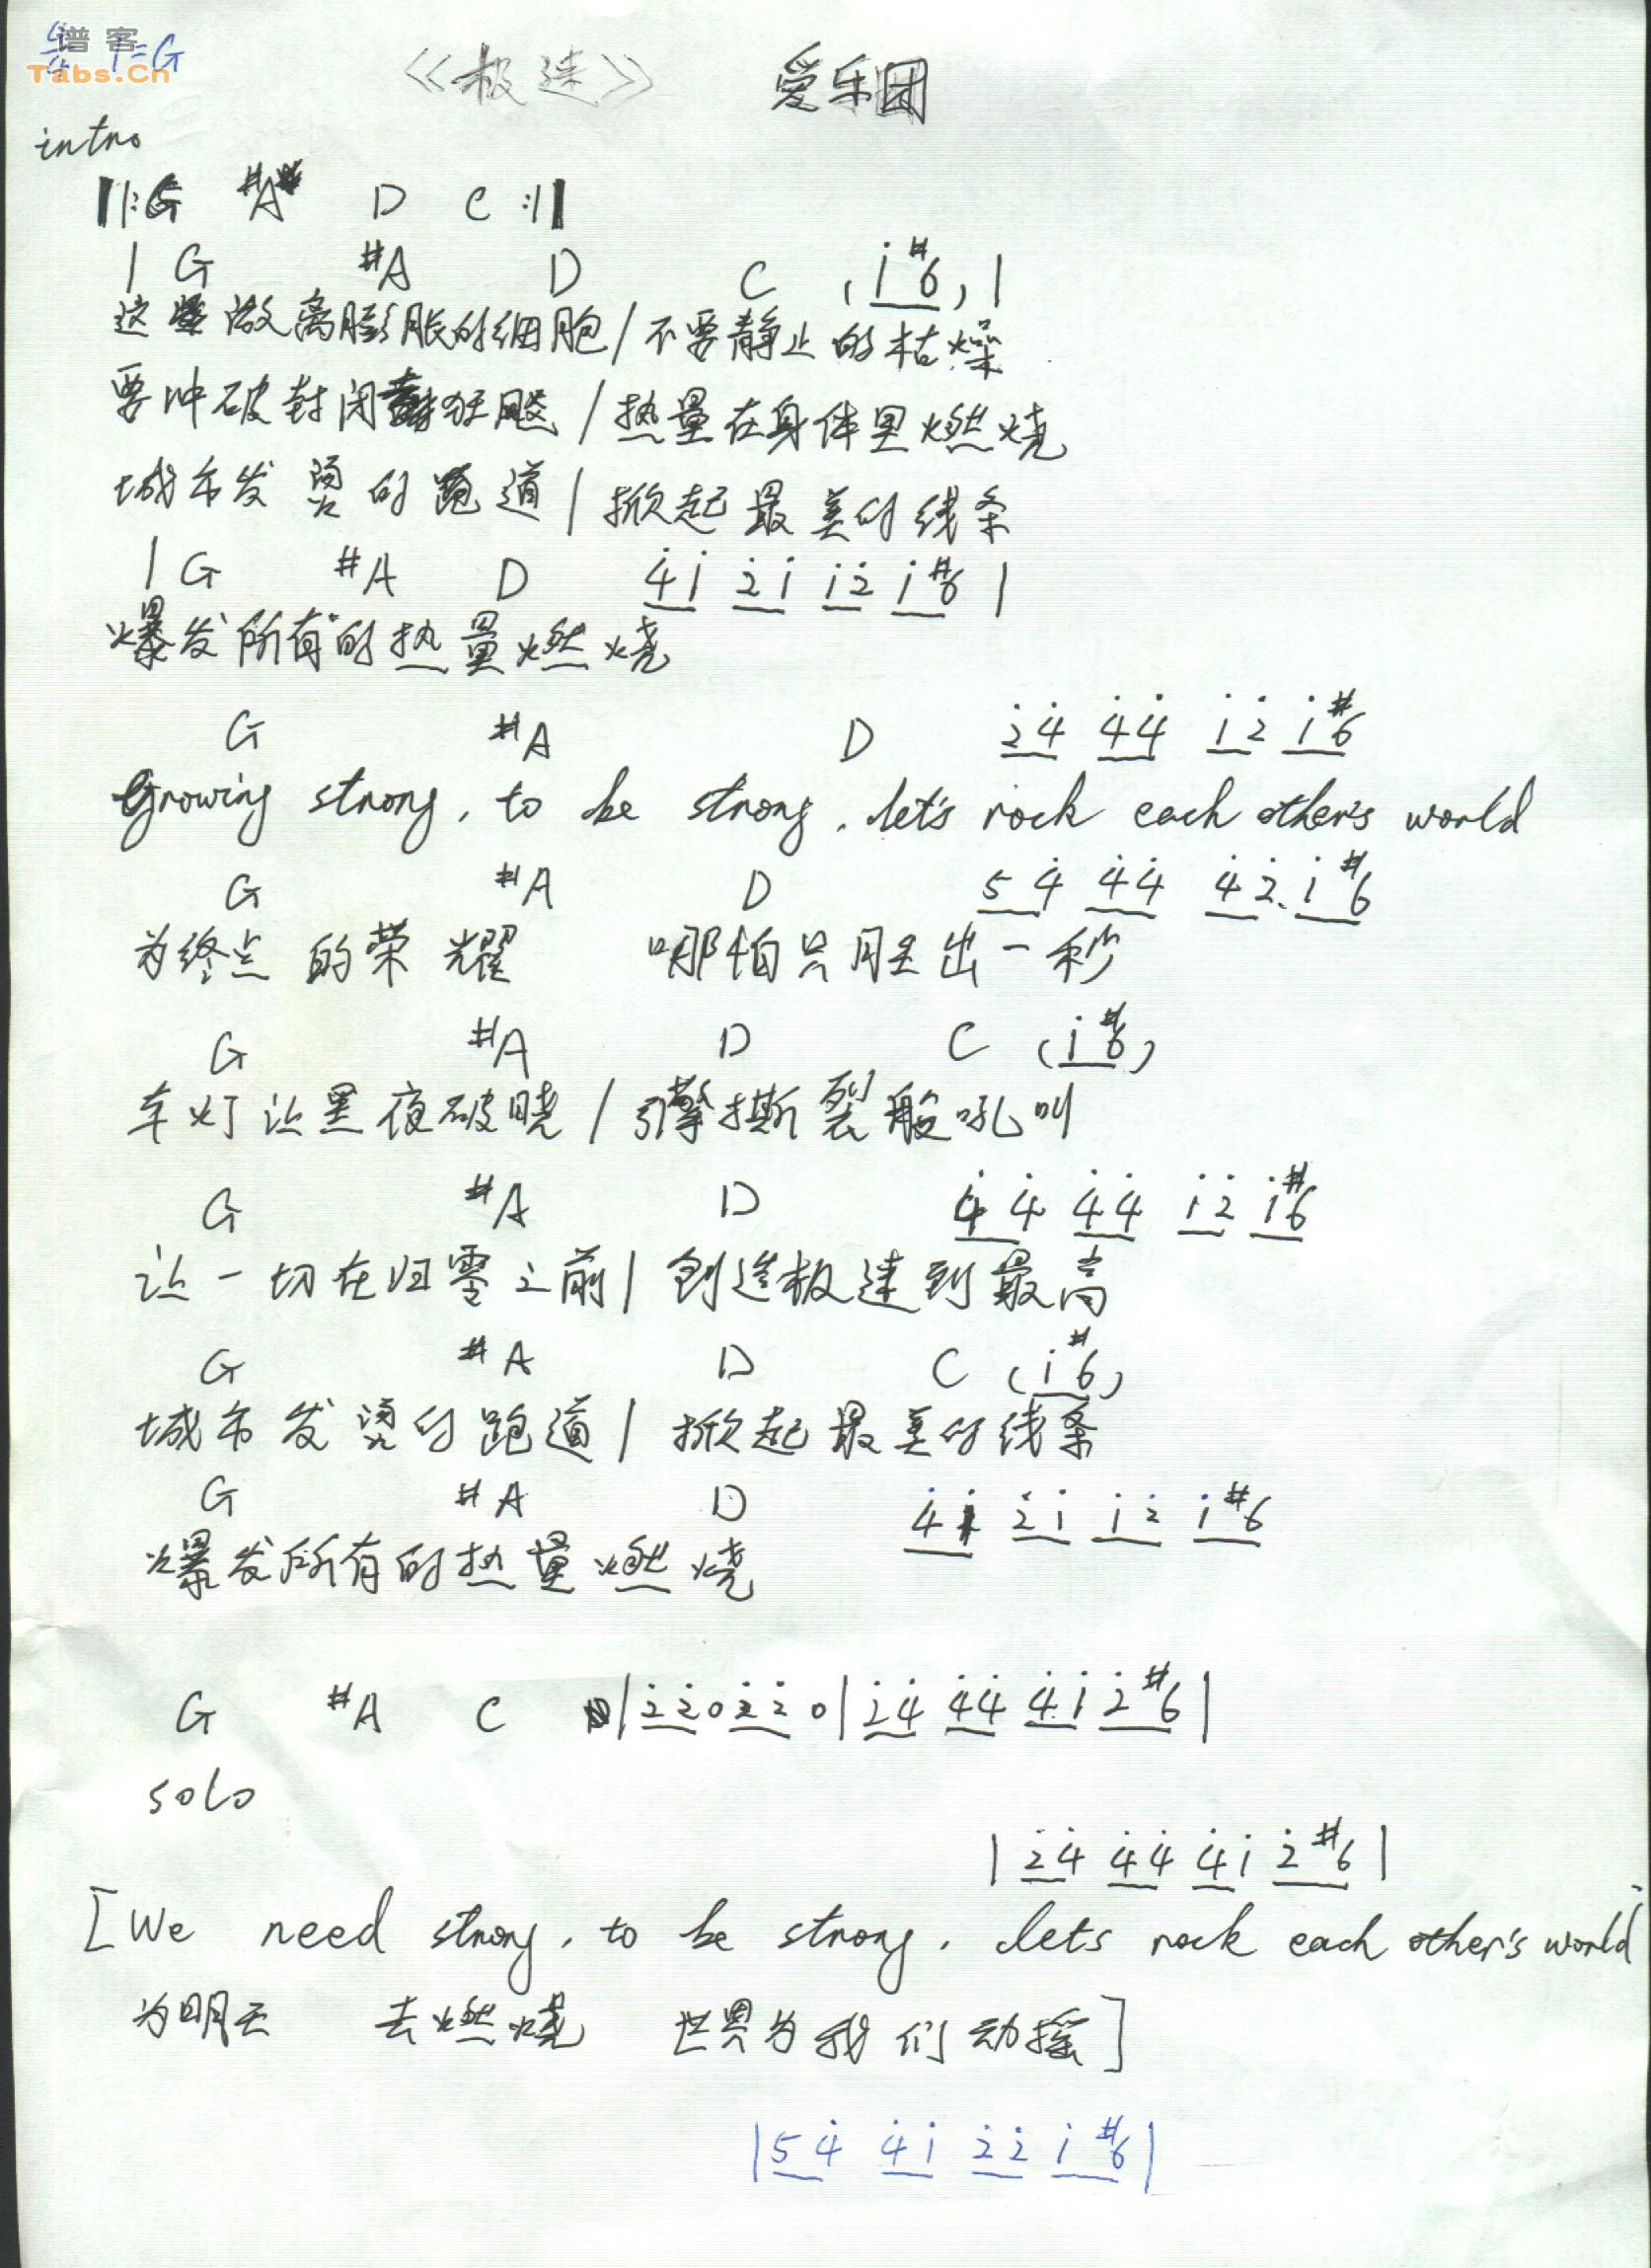 谱客
Tabs.Cn
4/4 1=G
《极速》 爱乐团
intro
‖: G #A D C :‖
| G #A D C (i̇ #6) |
这些激离膨胀的细胞/不要静止的枯燥
要冲破封闭 狂飚/热量在身体里燃烧
城市发烫的跑道/掀起最美的线条
| G #A D 4̇1̇ 2̇1̇ 1̇2̇ 1̇#6 |
爆发所有的热量燃烧
G #A D 2̇4̇ 4̇4̇ 1̇2̇ 1̇#6
Growing strong, to be strong, let's rock each other's world
G #A D 54̇ 4̇4̇ 4̇2̇ 1̇#6
为终点的荣耀 哪怕只胜出一秒
G #A D C (1̇#6)
车灯让黑夜破晓/引擎撕裂般吼叫
G #A D 4̇4̇ 4̇4̇ 1̇2̇ 1̇#6
让一切在归零之前/创造极速到最高
G #A D C (1̇#6)
城市发烫的跑道/掀起最美的线条
G #A D 4̇1̇ 2̇1̇ 1̇2̇ 1̇#6
爆发所有的热量燃烧
G #A C |2̇2̇0 2̇2̇0|2̇4̇ 4̇4̇ 4̇1̇ 2̇#6|
solo
|2̇4̇ 4̇4̇ 4̇1̇ 2̇#6|
[We need strong, to be strong, lets rock each other's world
为明天 去燃烧 世界为我们动摇]
|54̇ 4̇1̇ 2̇2̇ 1̇#6|